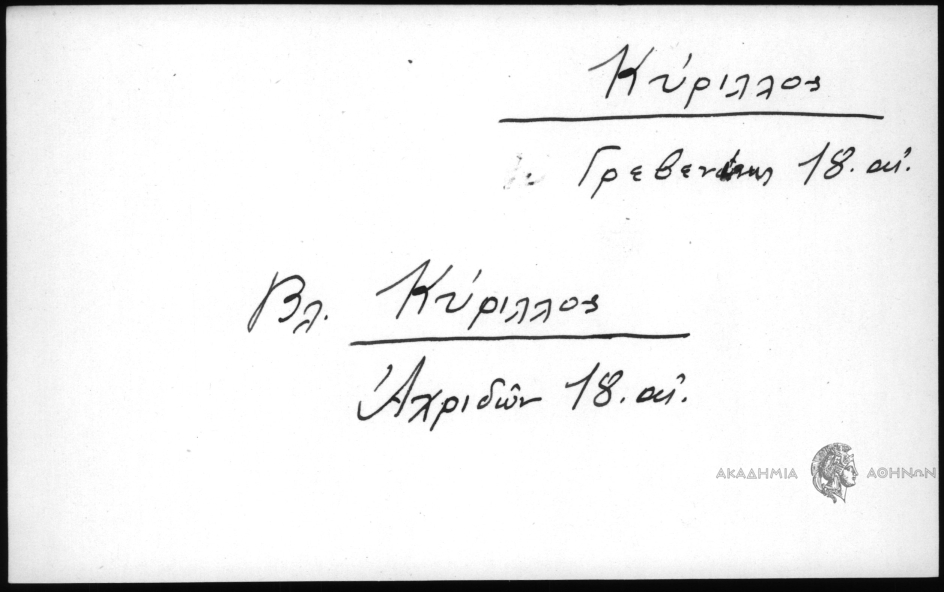 Κύριλλος
18. αἰ.
Βλ. Κύριλλος
Ἀχριδῶν 18. αἰ.
ΑΚΑΔΗΜΙΑ ΑΘΗΝΩΝ